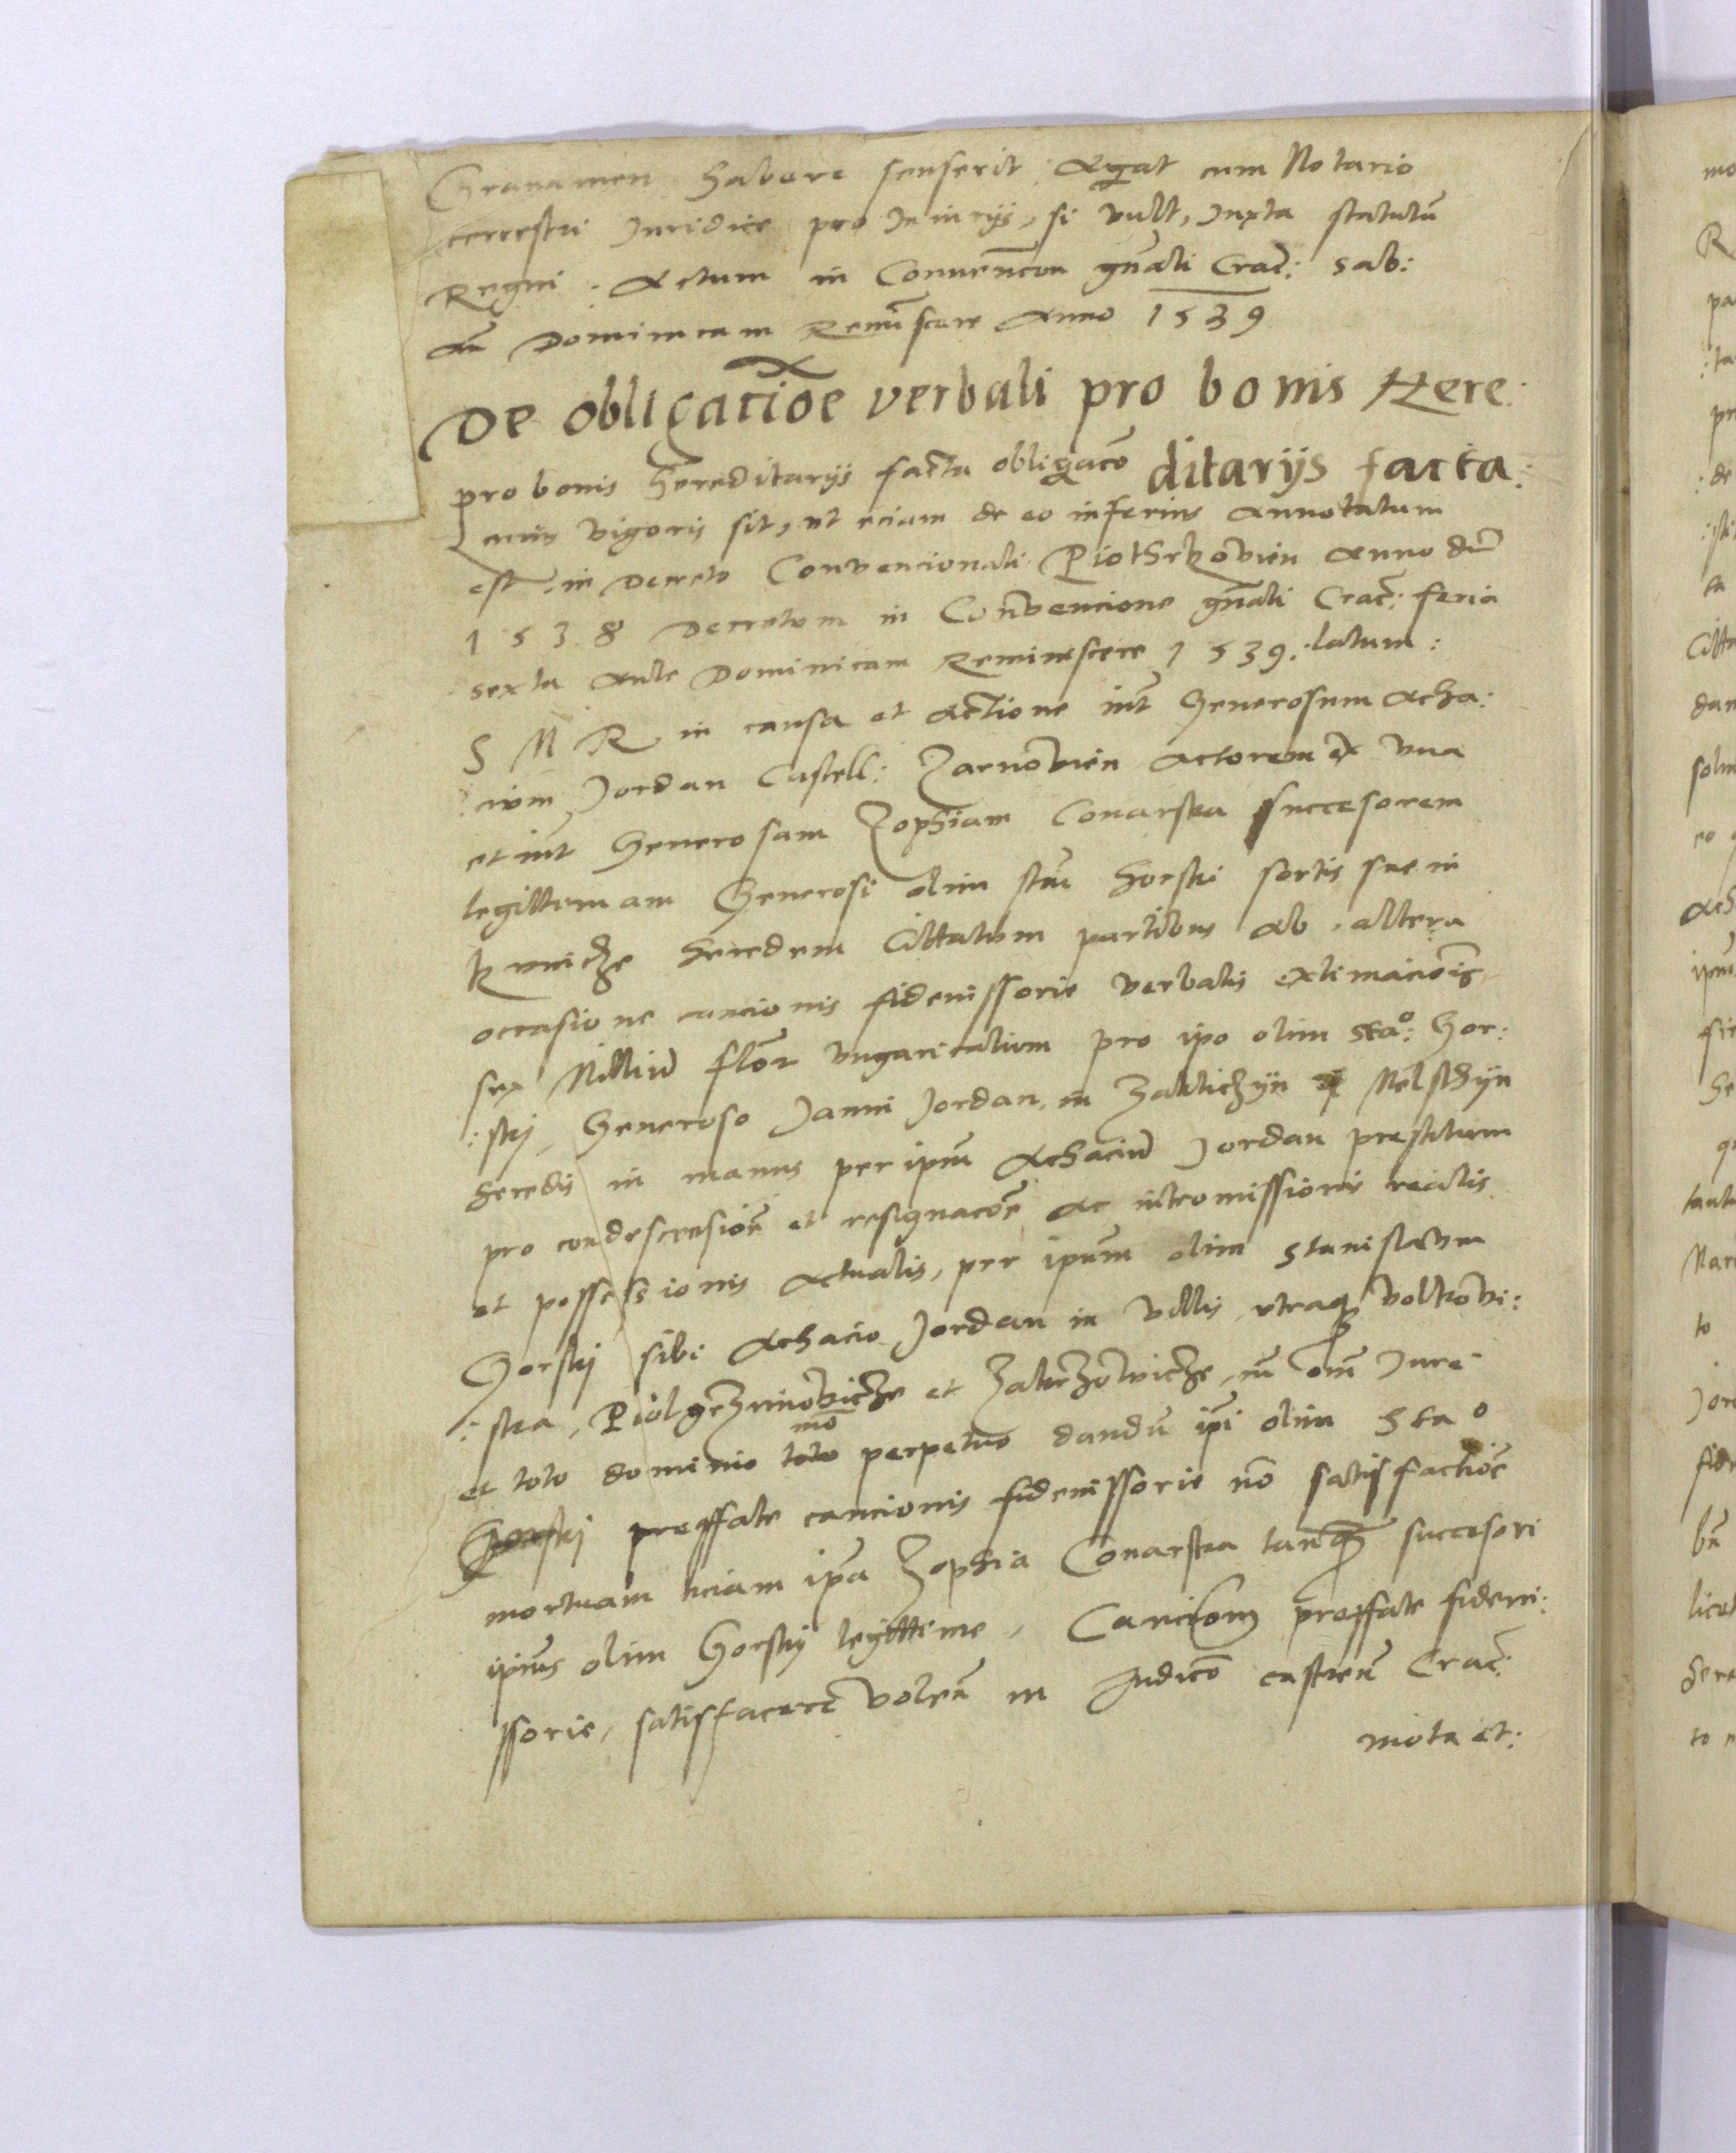 Grauamen habere senserit: Agat cum Notario
terrestri Iuridice pro Iniurijs, si vult, Iuxta statutũ
Regni: Actum in Conuenc̃on gñali Crac̃: sab:
añ Dominicam Remĩscere Anno 1539
De obligatiõe verbali pro bonis Here:
ditarijs facta:
pro bonis hereditarijs facta obligacõ
cuius vigoris sit, ut eciam de eo inferius annotatum
est: in Decreto Convencionali Piothrkovien̄ Anno dñi
1538 Decretum in Convencione gñali Crac̃: feria
sexta Ante Dominicam Reminescere 1539. latum:
S M R in causa et Actione int̃ Generosum Acha:
cium Jordan Castell: Zarnovien̄ Actorem ex vna
et int̃ Generosam Zophiam Conarska succesorem
legittimam Generosi olim stãi Gorski sortis sue in
heredem Cittatum partibus ab altera
occasione caucionis fideiussorie verbalis extimaciõis
sex Milliũ flor̃ vngaricalium pro ipo olim Staº: Gor:
:skj, Generoso Janni Jordan, in Zaklichzijn et Melsthijn
heredis in manus per ipm̃ Achaciũ Jordan prestitum
pro condescensiõe et resignacõe ac intromissionis realis
et possessionis Actualis, per ipum̃ olim Stanislaum
Gorskj sibi Achacio Jordan in villis, vtraq̃ Volkovi:
:ska, et cũ om̃i Jure
et toto dominio toto mõ perpetuo dandũ ip̃i olim Sta º
Gorskj preffate caucionis fideiussorie nõ satisfactiõe
mortuam eciam ip̃a Zophia Conarska tanq̃ succesori
ip̃ius olim Gorskij legittime, Caucionj preffate fideiu:
ssorie, satisfacere voleñ in Judicõ castreñ Crac̃:
mota et: